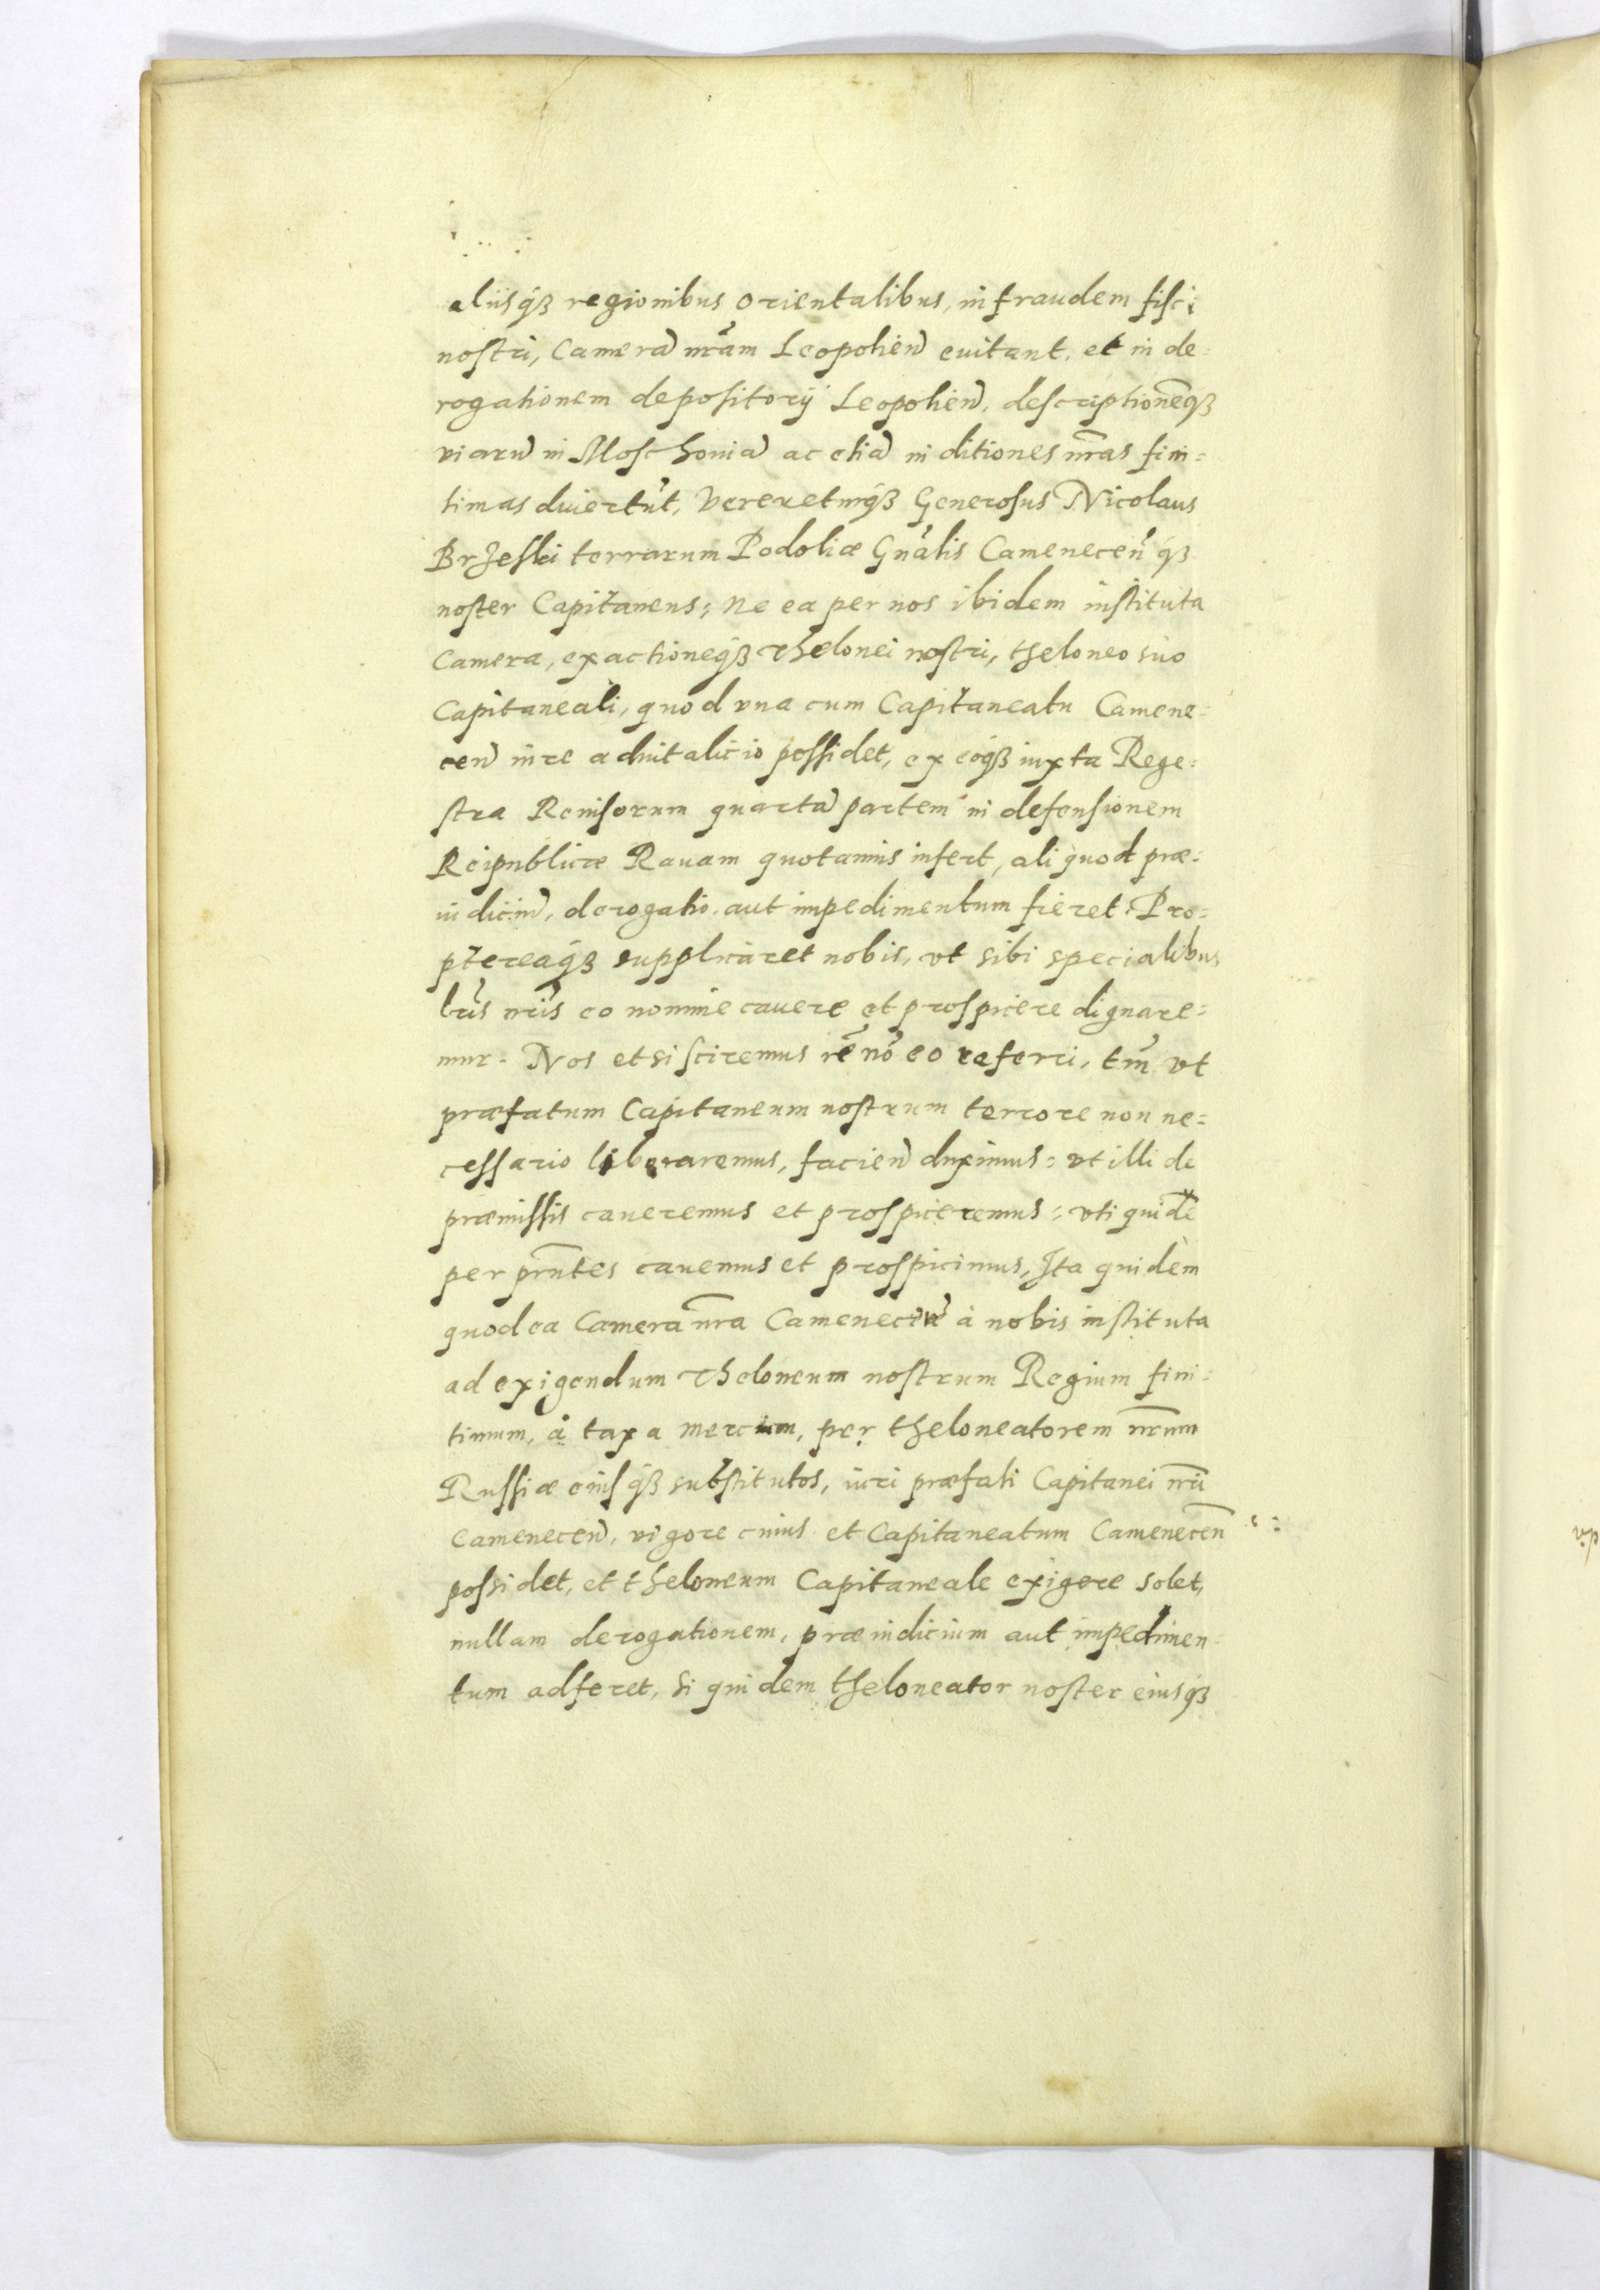 aliisq́ꝫ regionibus orientalibus, in fraudem fisci
nostri, Camerã nr̃am Leopolien̄ euitant, et in de=
rogationem depositorij Leopolien̄, descriptionẽqꝫ
viarũ in Moschouiã ac etiã in ditiones nr̃as fini=
timas diuertũt, Verereturq́ꝫ Generosus Nicolaus
Brzeski terrarum Podoliæ Gnãlis Camenecen̄ q́ꝫ
noster Capitaneus; ne ea per nos ibidem instituta
Camera, exactioneq́ꝫ Thelonei nostri, theloneo suo
Capitaneali, quod vna cum Capitaneatu Camene=
cen̄ iure aduitalicio possidet, ex eoqꝫ iuxta Rege=
stra Reuisorum quartã partem in defensionem
Reipublicæ Rauam quotannis infert, aliquod præ=
iudiciũ, derogatio aut impedimentum fieret: Pro=
p̃tereaq́ꝫ supplicaret nobis, vt sibi specialibus
lr̃is nr̃is eo nomine cauere et prospicere dignare=
mur. Nos etsi sciremus rẽ nõ eo referri, tm̃ vt
præfatum Capitaneum nostrum terrore non ne=
cessario liberaremus, facien̄ duximus: vt illi de
præmissis caueremus et prospiceremus: vti quidẽ
per pn̄tes cauemus et prospicimus, Ita quidem
quod ea Camera nr̃a Camenecen̄ à nobis instituta
ad exigendum Theloneum nostrum Regium fini=
timum, à taxa mercium, per theloneatorem nr̃um
Russiæ eiusq́ꝫ substitutos, iuri præfati Capitanei nr̃i
Camenecen̄, vigore cuius et Capitaneatum Camenecen̄
possidet, et theloneum Capitaneale exigere solet,
nullam derogationem, præiudicium aut impedimen=
tum adferet, Si quidem theloneator noster eiusq́ꝫ